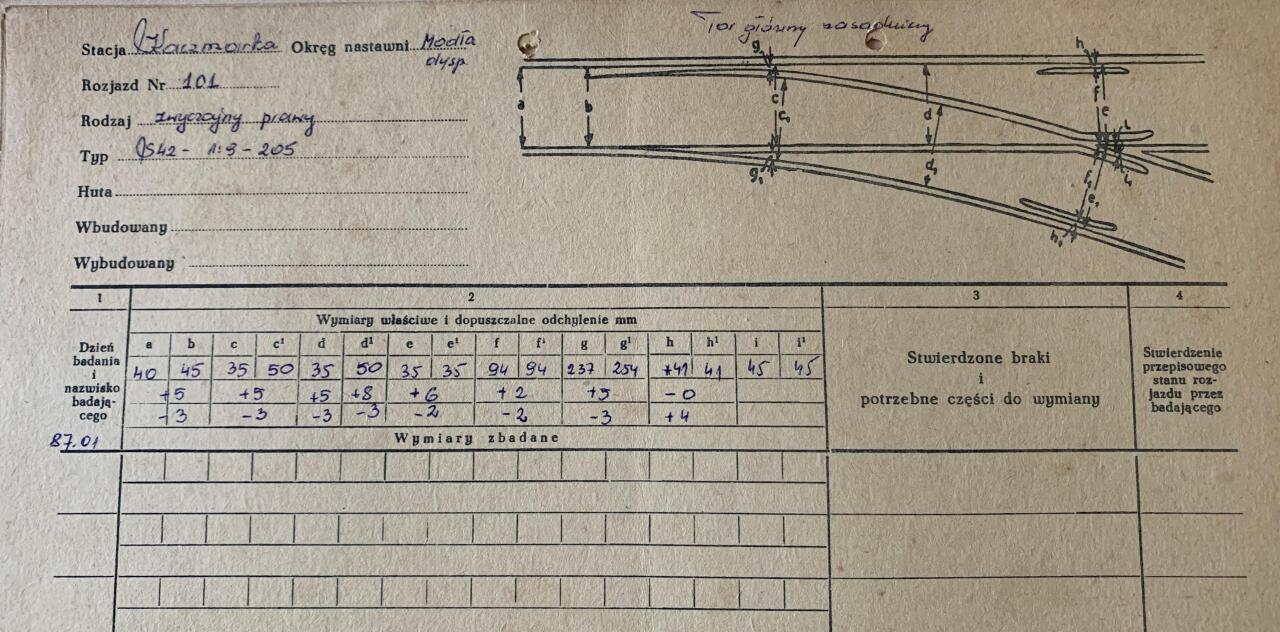 Tor główny zasadniczy
Stacja Kaczmarka Okręg nastawni Modła
dysp
Rozjazd Nr 101
Rodzaj zwyczajny prawy
Typ S42 - 1:9 - 205
Huta
Wbudowany
Wybudowany
g h
a b c c₁ d d₁ f e i
g₁ f₁ e₁ i₁ h₁
1 2 3 4
Wymiary właściwe i dopuszczalne odchylenie mm
Dzień badania i nazwisko badającego
a b c c¹ d d¹ e e¹ f f¹ g g¹ h h¹ i i¹
40 45 35 50 35 50 35 35 94 94 237 254 +41 41 45 45
+5 +5 +5 +8 +6 +2 +5 -0
-3 -3 -3 -3 -2 -2 -3 +4
Stwierdzone braki
i
potrzebne części do wymiany
Stwierdzenie
przepisowego
stanu roz-
jazdu przez
badającego
87.01
Wymiary zbadane